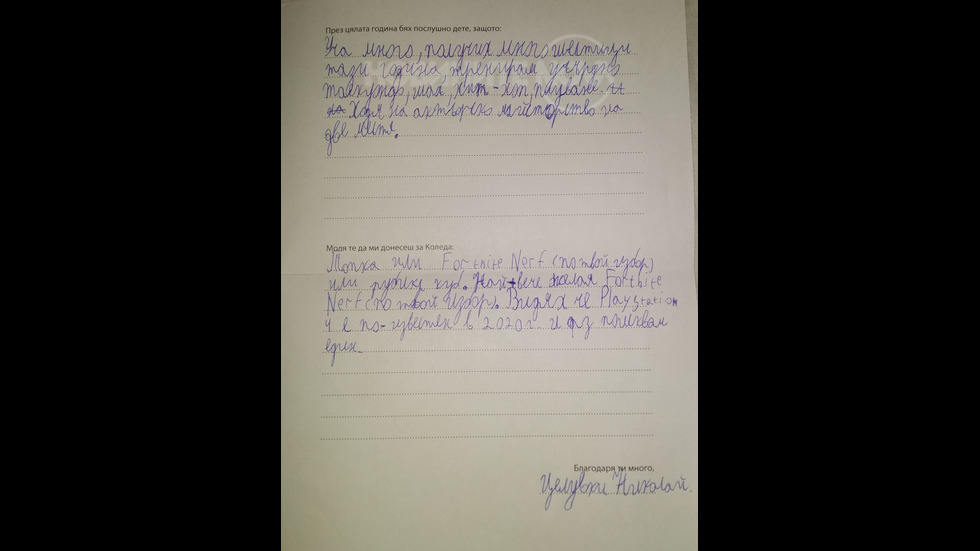 През цялата година бях послушно дете, защото:
Уча много, получих много шестици
тази година, тренирам усърдно
таекуондо, шах, хип-хоп, плуване. И
на Ходя на актьорско майсторство на
две места.
Моля те да ми донесеш за Коледа:
Топка или Fortnite Nerf (по твой избор)
или рубик куб. Най-вече желая Forthite
Nerf (по твой избор). Видях че Playstation
4 е по-известен в 2020 г. и аз поисквам
един.
Благодаря ти много,
Целувки Николай.